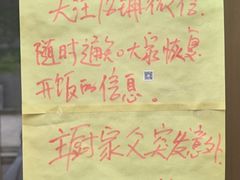 关注店铺微信.
随时通知大家恢复
开饭的信息.
主厨家父突发意外